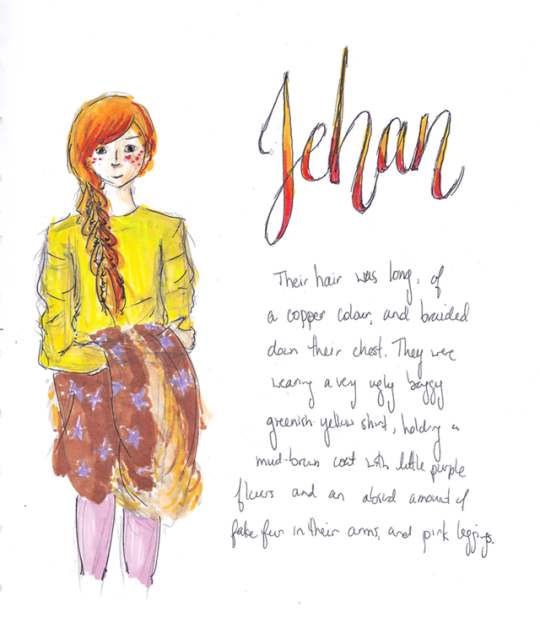 Jehan
Their hair was long, of
a copper colour, and braided
down their chest. They were
wearing a very ugly baggy
greenish-yellow shirt, holding a
mud-brown coat with little purple
flowers and an absurd amount of
fake fur in their arms, and pink leggings.